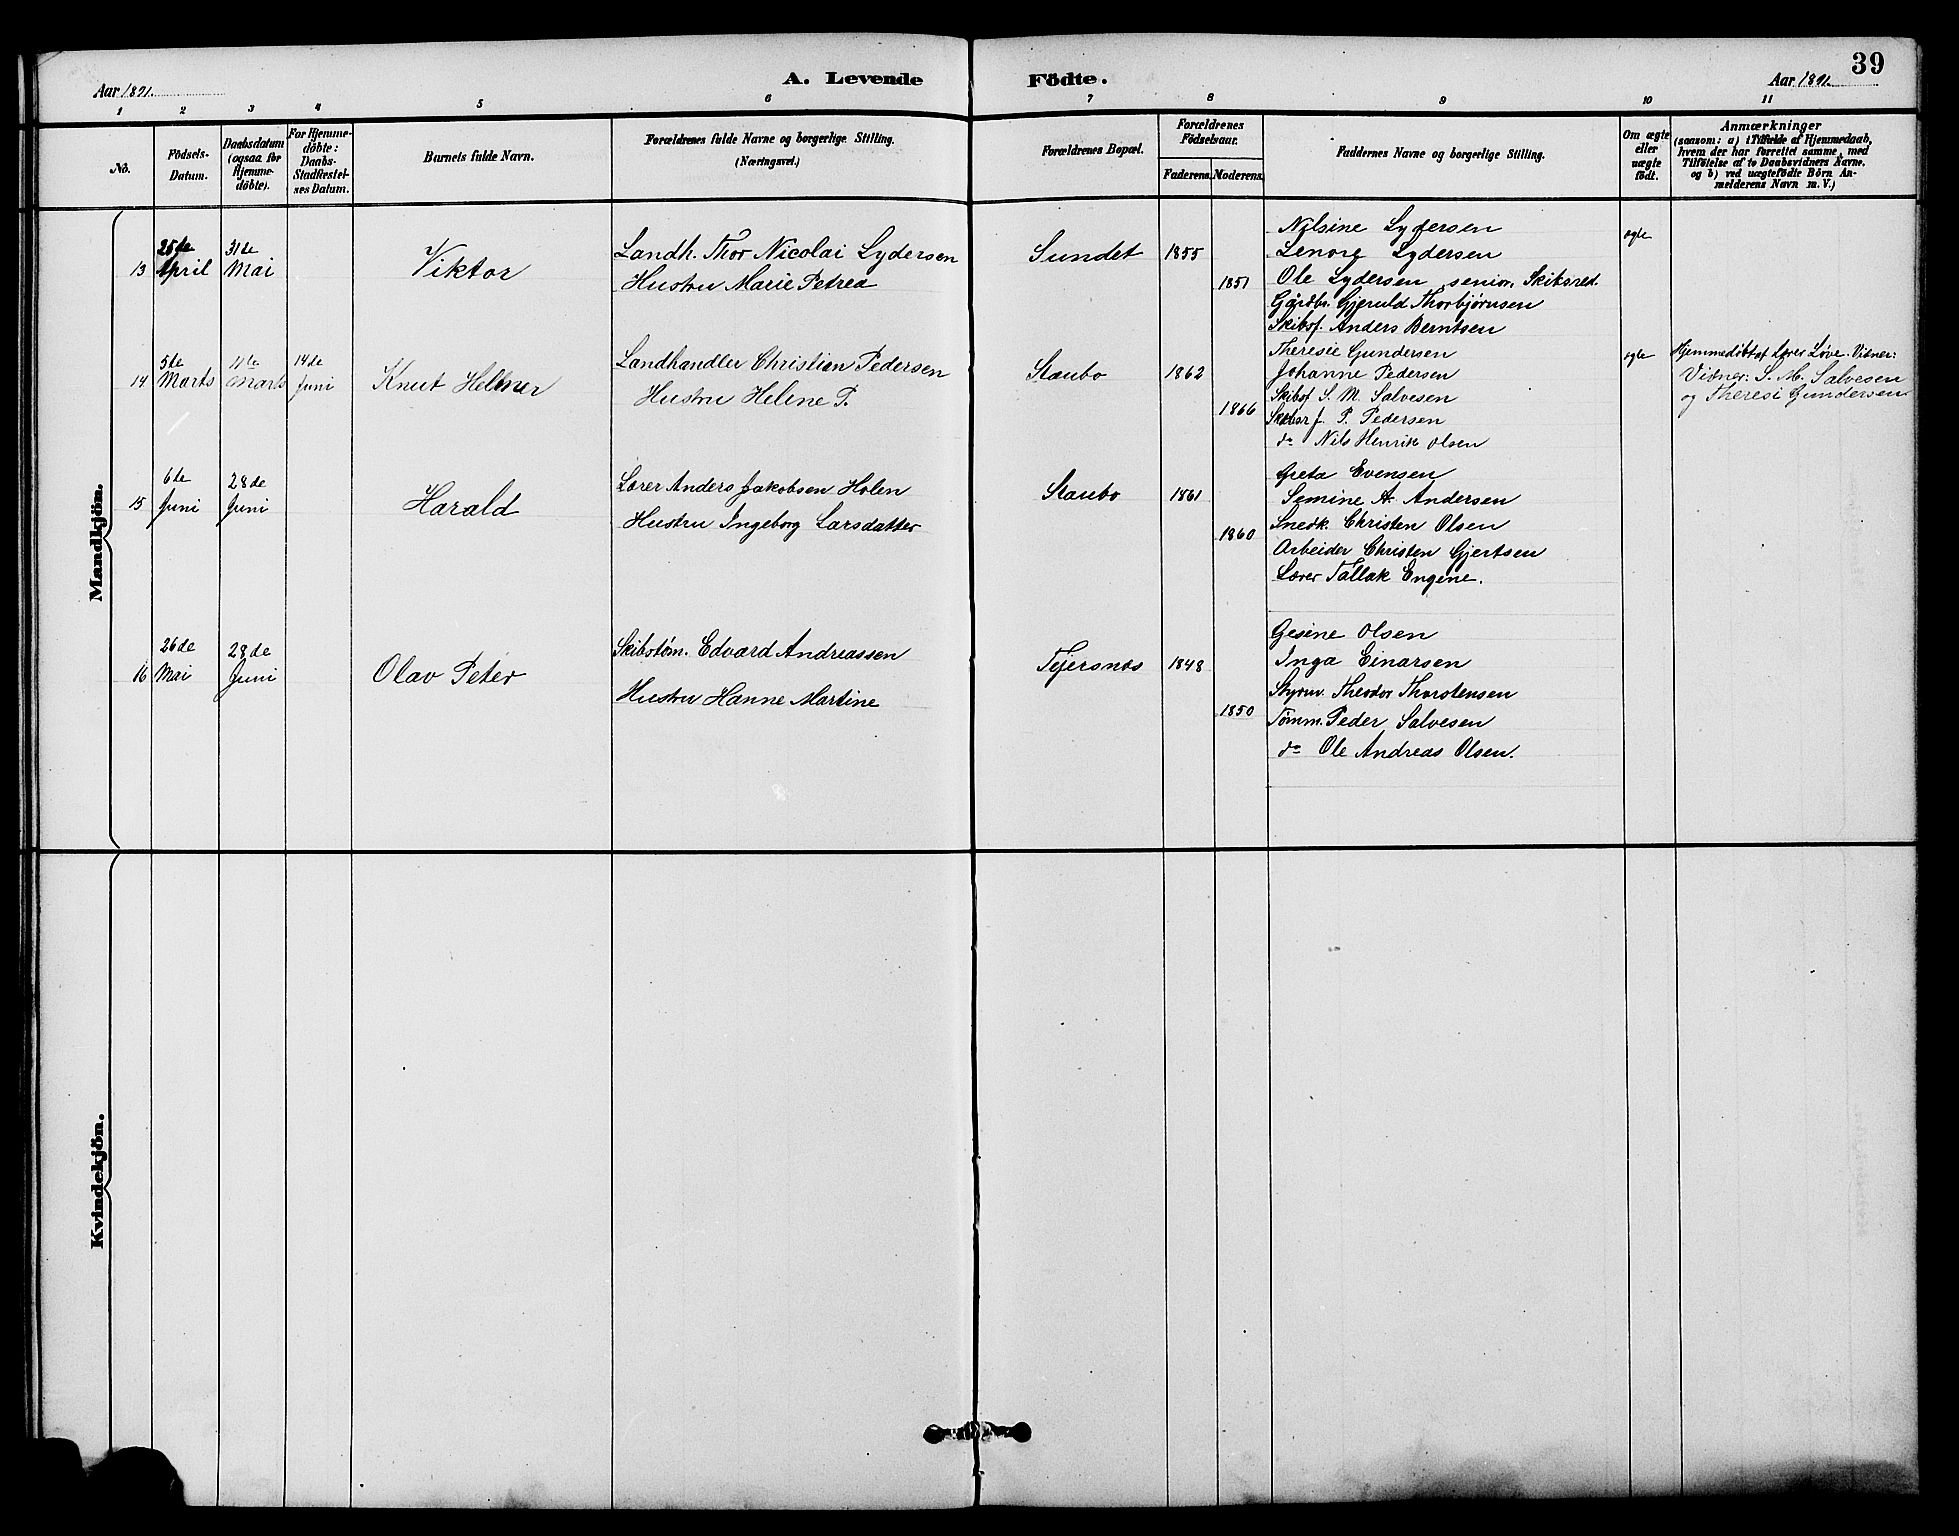 39
A. Levende Födte.
Aar 1891. Aar 1891.
1 2 3 4 5 6 7 8 9 10 11
No.
Födsels-Datum.
Daabsdatum (ogsaa for Hjemme-döbte).
For Hjemme-döbte: Daabs-Stadfestel-ses Datum.
Barnets fulde Navn.
Forældrenes fulde Navne og borgerlige Stilling. (Næringsvei.)
Forældrenes Bopæl.
Forældrenes Födselsaar.
Faderens. Moderens.
Faddernes Navne og borgerlige Stilling.
Om ægte eller uægte födt.
Anmærkninger (saasom: a) i Tilfælde af Hjemmedaab, hvem der har forrettet samme, med Tilföielse af to Daabsvidners Navne. og b) ved uægtefödte Börn An-melderens Navn m. V.)
Mandkjön.
13 25de April 31de Mai Viktor
Landh. Thor Nicolai Lydersen
Hustru Marie Petrea
Sundet 1855 1851
Nilsine Lydersen
Lenore Lydersen
Ole Lydersen senior, Skibsred.
Gårdbr. Gjeruld Thorbjørnsen
Skibsf. Anders Berntsen
ægte
14 5te Marts 11te Marts 14de Juni Knut Helmer
Landhandler Christian Pedersen
Hustru Helene P.
Staubo 1862 1866
Theresie Gundersen
Johanne Pedersen
Skibsf. S. M. Salvesen
Skibsf. P. Pedersen
do Nils Henrik Olsen
ægte
Hjemmedøbt af Lærer Løve. Vidner:
Vidner: S. M. Salvesen
og Theresi Gundersen
15 6te Juni 28de Juni Harald
Lærer Anders Jakobsen Holen
Hustru Ingeborg Larsdatter
Staubo 1861 1860
Greta Evensen
Semine A. Andersen
Snedk. Christen Olsen
Arbeider Christen Gjertsen
Lærer Tallak Engene.
16 26de Mai 28de Juni Olav Peter
Skibstøm. Edvard Andreassen
Hustru Hanne Martine
Tejersnæs 1848 1850
Gesine Olsen
Inga Einarsen
Styrm. Theodor Thorstensen
Tømm. Peder Salvesen
do Ole Andreas Olsen.
Kvindekjön.